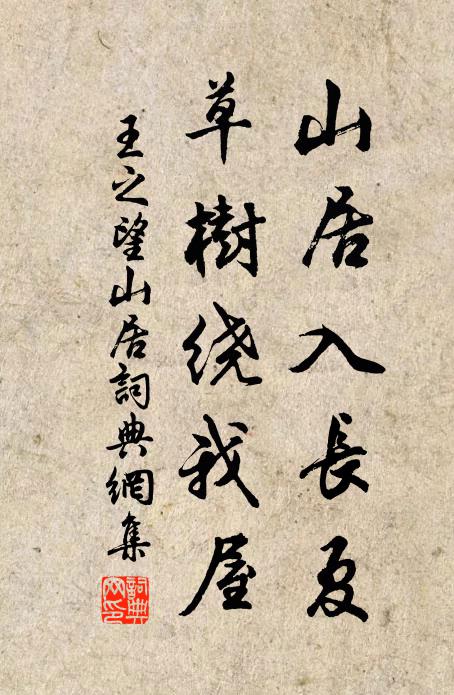 山居入長夏
草樹绕我屋
王之望山居詞典網集
詞典網印